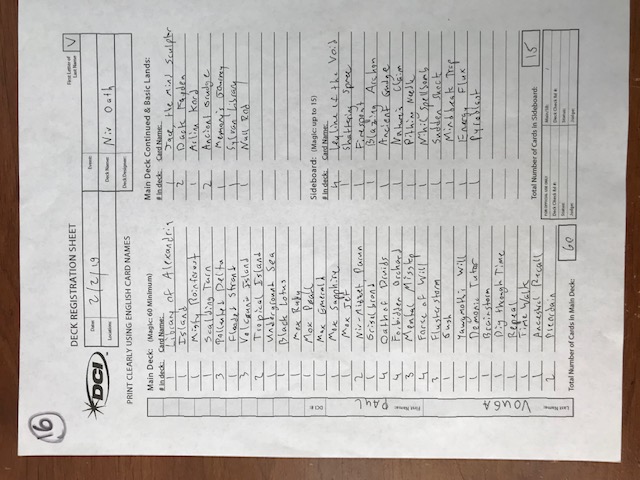 16
DECK REGISTRATION SHEET
First Letter of Last Name V
DCI
Date: 2/2/19
Event:
Location:
Deck Name: Niv Oath
Deck Designer:
PRINT CLEARLY USING ENGLISH CARD NAMES
Main Deck: (Magic: 60 Minimum)
# in deck: Card Name:
1 Library of Alexandria
1 Island
1 Misty Rainforest
1 Scalding Tarn
3 Polluted Delta
1 Flooded Strand
3 Volcanic Island
2 Tropical Island
1 Underground Sea
1 Black Lotus
1 Mox Ruby
1 Mox Pearl
1 Mox Emerald
1 Mox Sapphire
1 Mox Jet
2 Niv-Mizzet Parun
1 Griselbrand
4 Oath of Druids
4 Forbidden Orchard
3 Mental Misstep
4 Force of Will
3 Flusterstorm
1 Gush
1 Yawgmoth's Will
1 Demonic Tutor
1 Brainstorm
1 Dig through Time
1 Repeal
1 Time Walk
1 Ancestral Recall
2 Preordain
Total Number of Cards in Main Deck: 60
Main Deck Continued & Basic Lands:
# in deck: Card Name:
1 Jace, the Mind Sculptor
2 Dack Fayden
1 Arlinn Kord
2 Ancient Grudge
1 Memory's Journey
1 Sylvan Library
1 Null Rod
Sideboard: (Magic: up to 15)
# in deck: Card Name:
4 Leyline of the Void
1 Shattering Spree
1 Firespout
1 Blazing Archon
1 Ancient Grudge
1 Nature's Claim
1 Pithing Needle
1 Nihil Spellbomb
1 Sudden Shock
1 Mindbreak Trap
1 Energy Flux
1 Pyroblast
Total Number of Cards in Sideboard: 15
FOR OFFICIAL USE ONLY
Deck Check Rd #:
Status:
Judge:
Main/SB:
Deck Check Rd #:
Status:
Judge:
DCI #:
First Name: PAUL
Last Name: VOUGA